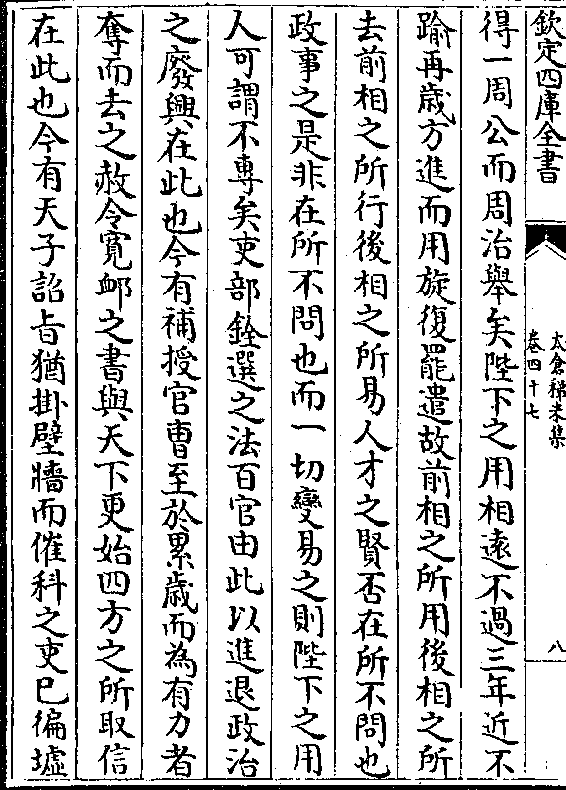 欽定四庫全書
太倉稊米集
卷四十七
八
得一周公而周治舉矣陛下之用相遠不過三年近不
踰再歳方進而用旋復罷遣故前相之所用後相之所
去前相之所行後相之所易人才之賢否在所不問也
政事之是非在所不問也而一切變易之則陛下之用
人可謂不專矣吏部銓選之法百官由此以進退政治
之廢興在此也今有補授官曹至於累歳而為有力者
奪而去之赦令寛卹之書與天下更始四方之所取信
在此也今有天子詔旨猶掛壁牆而催科之吏已徧墟